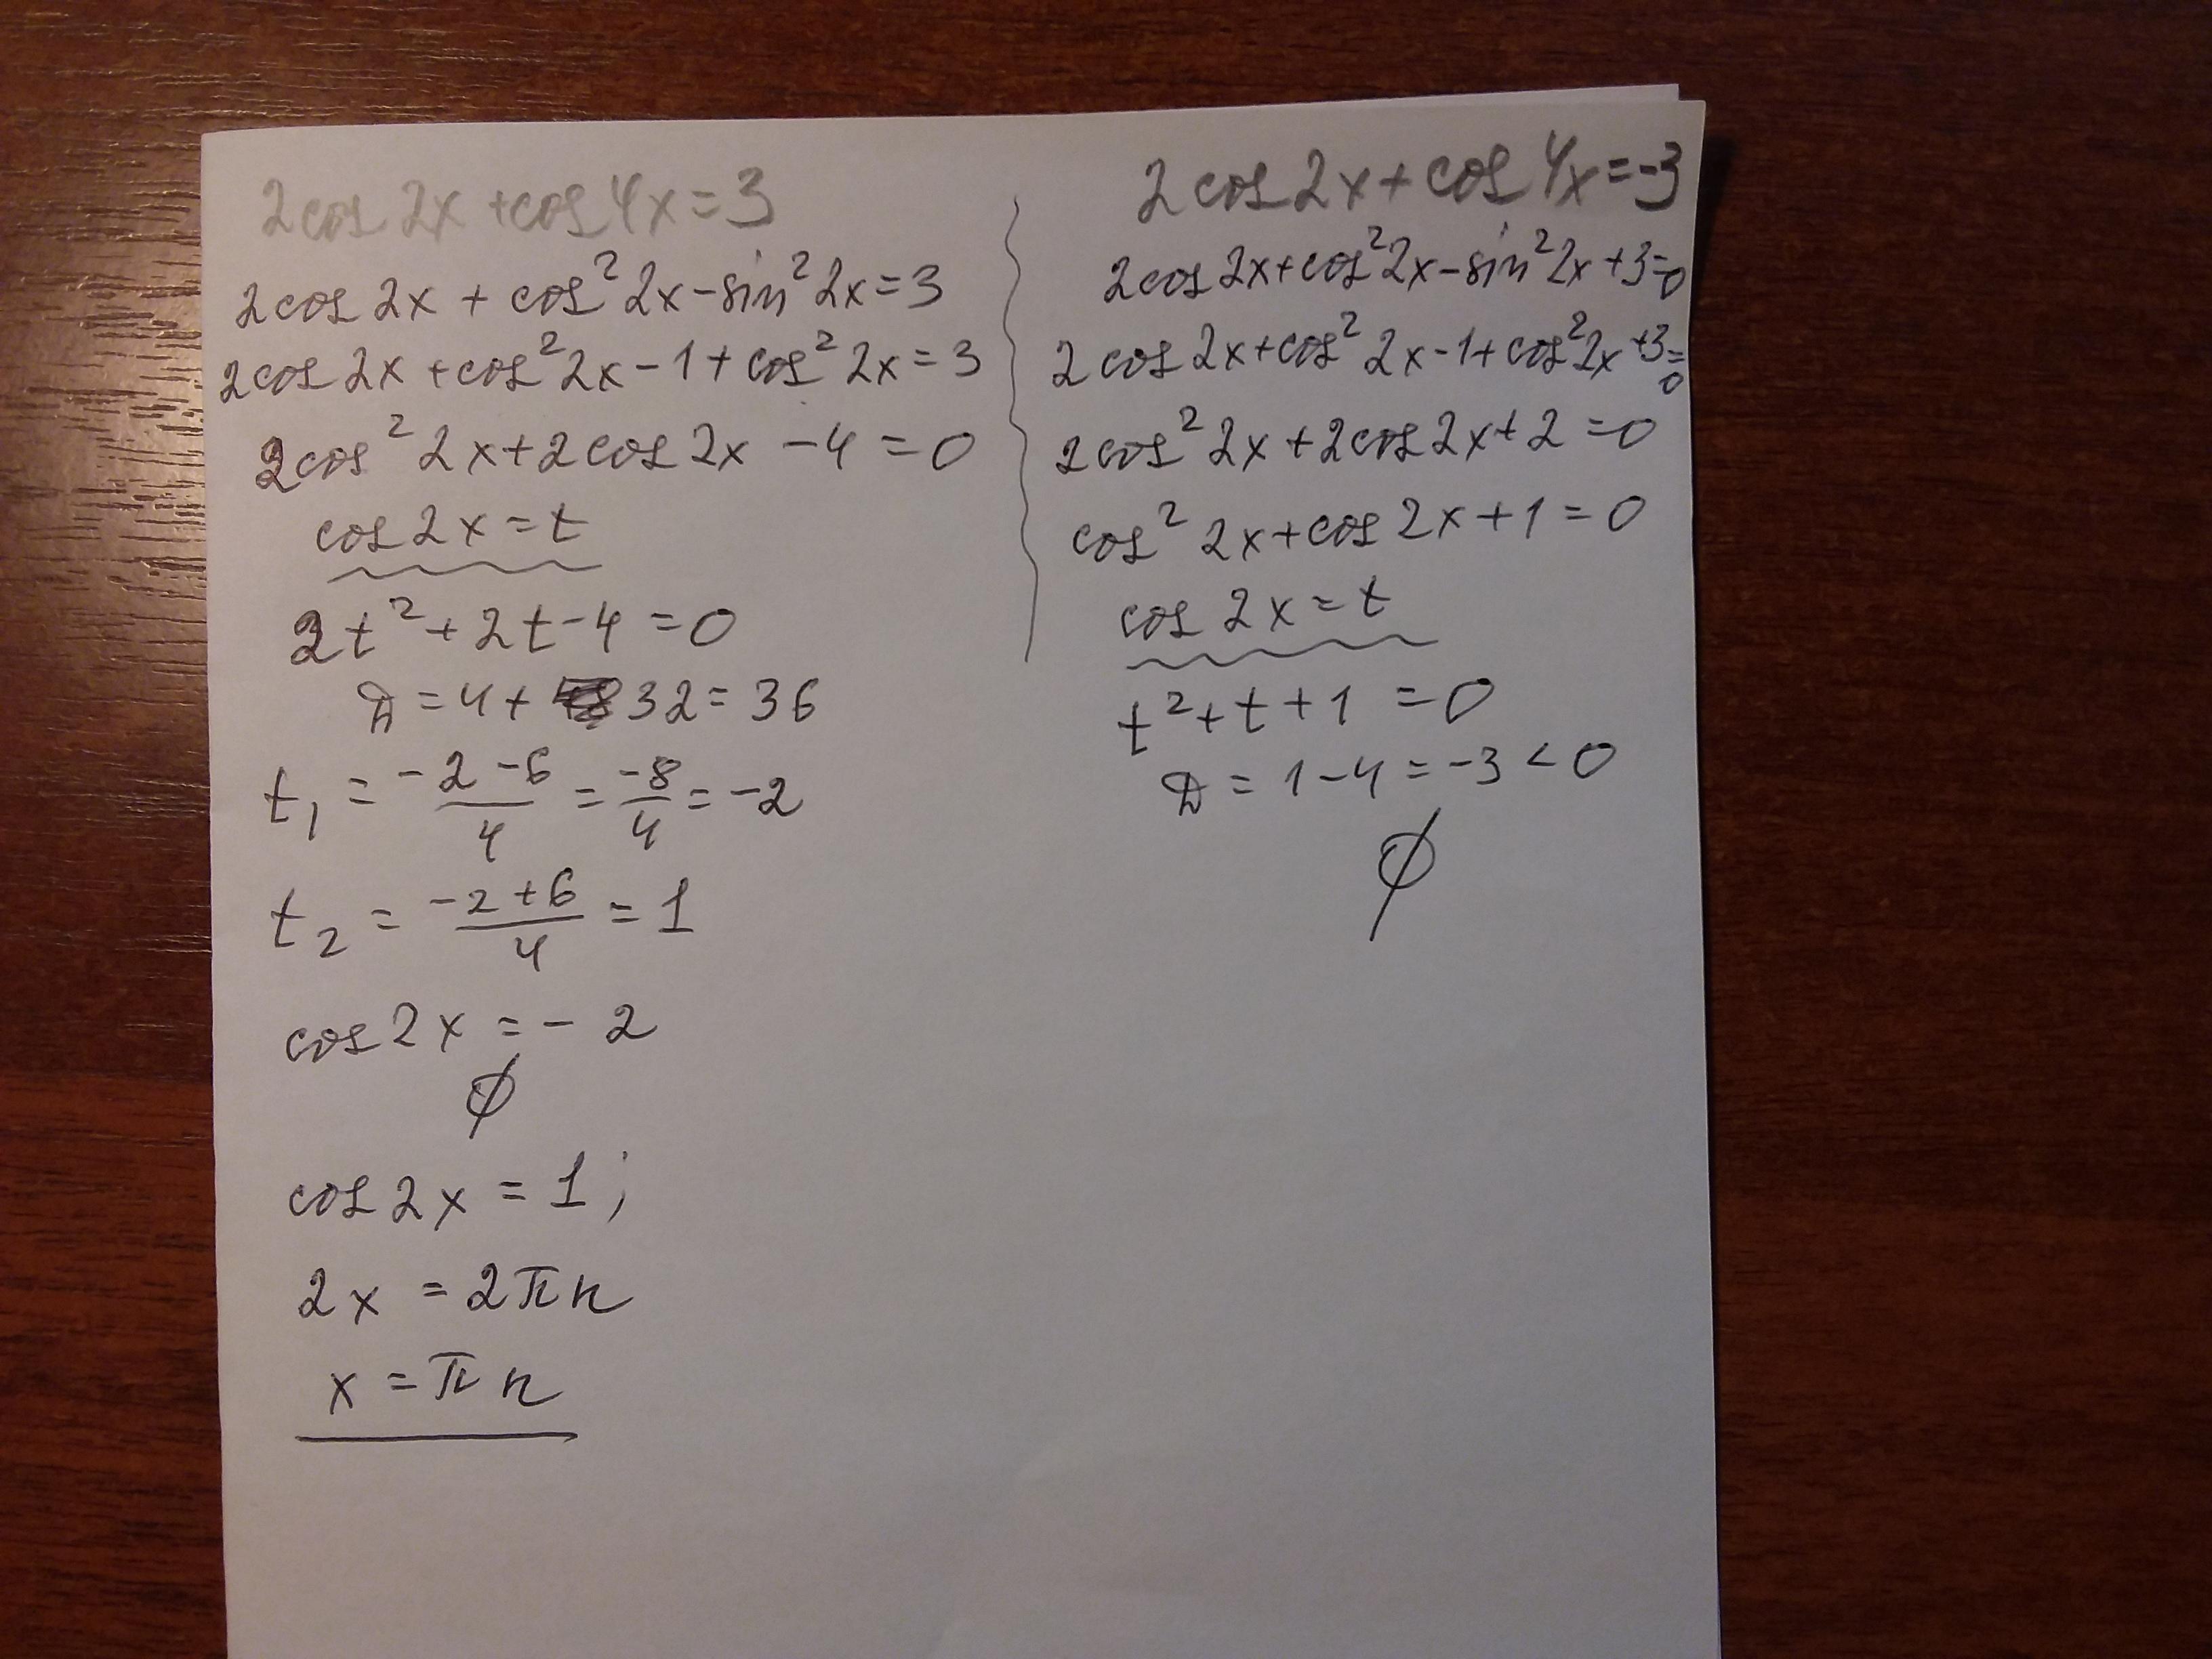 2cos 2x + cos 4x = 3
2cos 2x + cos² 2x - sin² 2x = 3
2cos 2x + cos² 2x - 1 + cos² 2x = 3
2cos² 2x + 2cos 2x - 4 = 0
cos 2x = t
2t² + 2t - 4 = 0
D = 4 + 32 = 36
t₁ = (-2 - 6)/4 = -8/4 = -2
t₂ = (-2 + 6)/4 = 1
cos 2x = - 2
∅
cos 2x = 1;
2x = 2πn
x = πn
2cos 2x + cos 4x = -3
2cos 2x + cos² 2x - sin² 2x + 3 = 0
2cos 2x + cos² 2x - 1 + cos² 2x + 3 = 0
2cos² 2x + 2cos 2x + 2 = 0
cos² 2x + cos 2x + 1 = 0
cos 2x = t
t² + t + 1 = 0
D = 1 - 4 = -3 < 0
∅